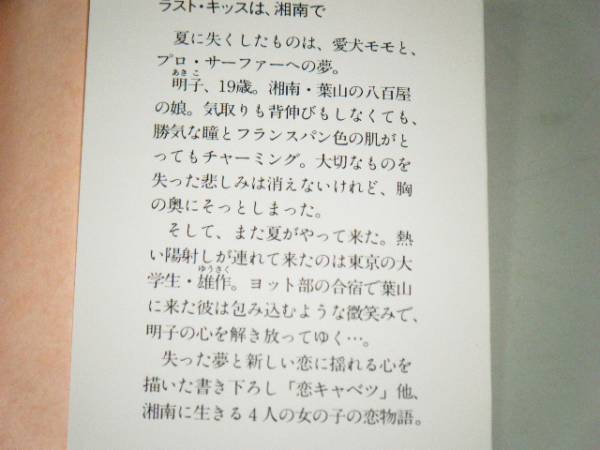 ラスト・キッスは、湘南で
夏に失くしたものは、愛犬モモと、
プロ・サーファーへの夢。
あきこ
明子、19歳。湘南・葉山の八百屋
の娘。気取りも背伸びもしなくても、
勝気な瞳とフランスパン色の肌がと
ってもチャーミング。大切なものを
失った悲しみは消えないけれど、胸
の奥にそっとしまった。
そして、また夏がやって来た。熱
い陽射しが連れて来たのは東京の大
ゆうさく
学生・雄作。ヨット部の合宿で葉山
に来た彼は包み込むような微笑みで、
明子の心を解き放ってゆく…。
失った夢と新しい恋に揺れる心を
描いた書き下ろし「恋キャベツ」他、
湘南に生きる4人の女の子の恋物語。